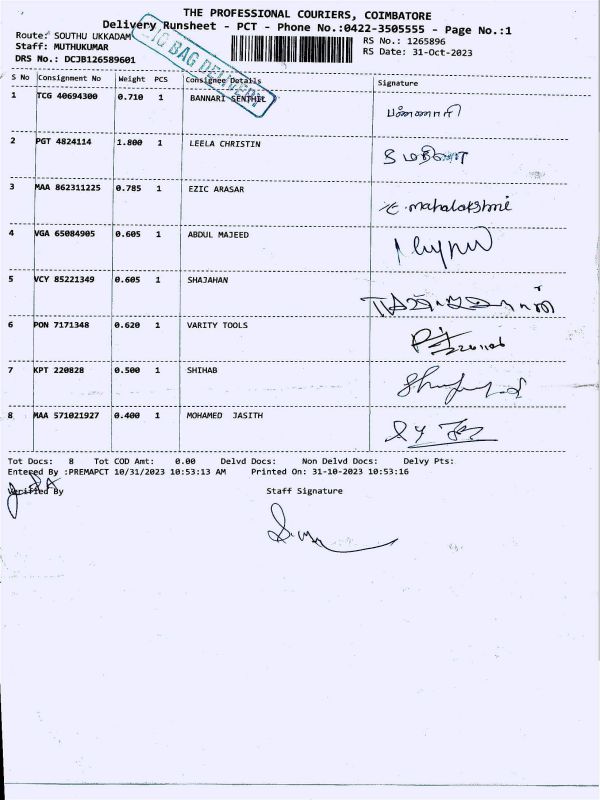 THE PROFESSIONAL COURIERS, COIMBATORE
Delivery Runsheet - PCT - Phone No.:0422-3505555 - Page No.:1
Route: SOUTHU UKKADAM
RS No.: 1265896
Staff: MUTHUKUMAR
RS Date: 31-Oct-2023
DRS No.: DCJB126589601
BAG DELIVERY
S No Consignment No Weight PCS Consignee Details Signature
1 TCG 40694300 0.710 1 BANNARI SENTHIL
2 PGT 4824114 1.800 1 LEELA CHRISTIN
3 MAA 862311225 0.785 1 EZIC ARASAR mahalakshmi
4 VGA 65084905 0.605 1 ABDUL MAJEED
5 VCY 85221349 0.605 1 SHAJAHAN
6 PON 7171348 0.620 1 VARITY TOOLS
7 KPT 220828 0.500 1 SHIHAB
8 MAA 571021927 0.400 1 MOHAMED JASITH
Tot Docs: 8 Tot COD Amt: 0.00 Delvd Docs: Non Delvd Docs: Delvy Pts:
Entered By :PREMAPCT 10/31/2023 10:53:13 AM Printed On: 31-10-2023 10:53:16
Verified By Staff Signature